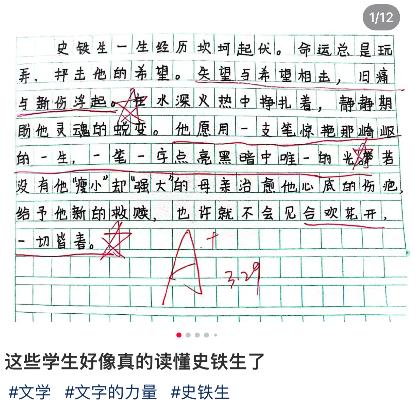 1/12
史铁生一生经历坎坷起伏。命运总是玩
弄、抨击他的希望。失望与希望相击，旧痛
与新伤浮起。在水深火热中挣扎着，静静期
盼他灵魂的蜕变。他愿用一支笔惊艳那崎岖
的一生，一笔一字点亮黑暗中唯一的光。若
没有他“瘦小”却“强大”的母亲治愈他心底的伤疤，
给予他新的救赎，也许就不会见合欢花开，
一切皆春。
A+
3.29
这些学生好像真的读懂史铁生了
#文学 #文字的力量 #史铁生